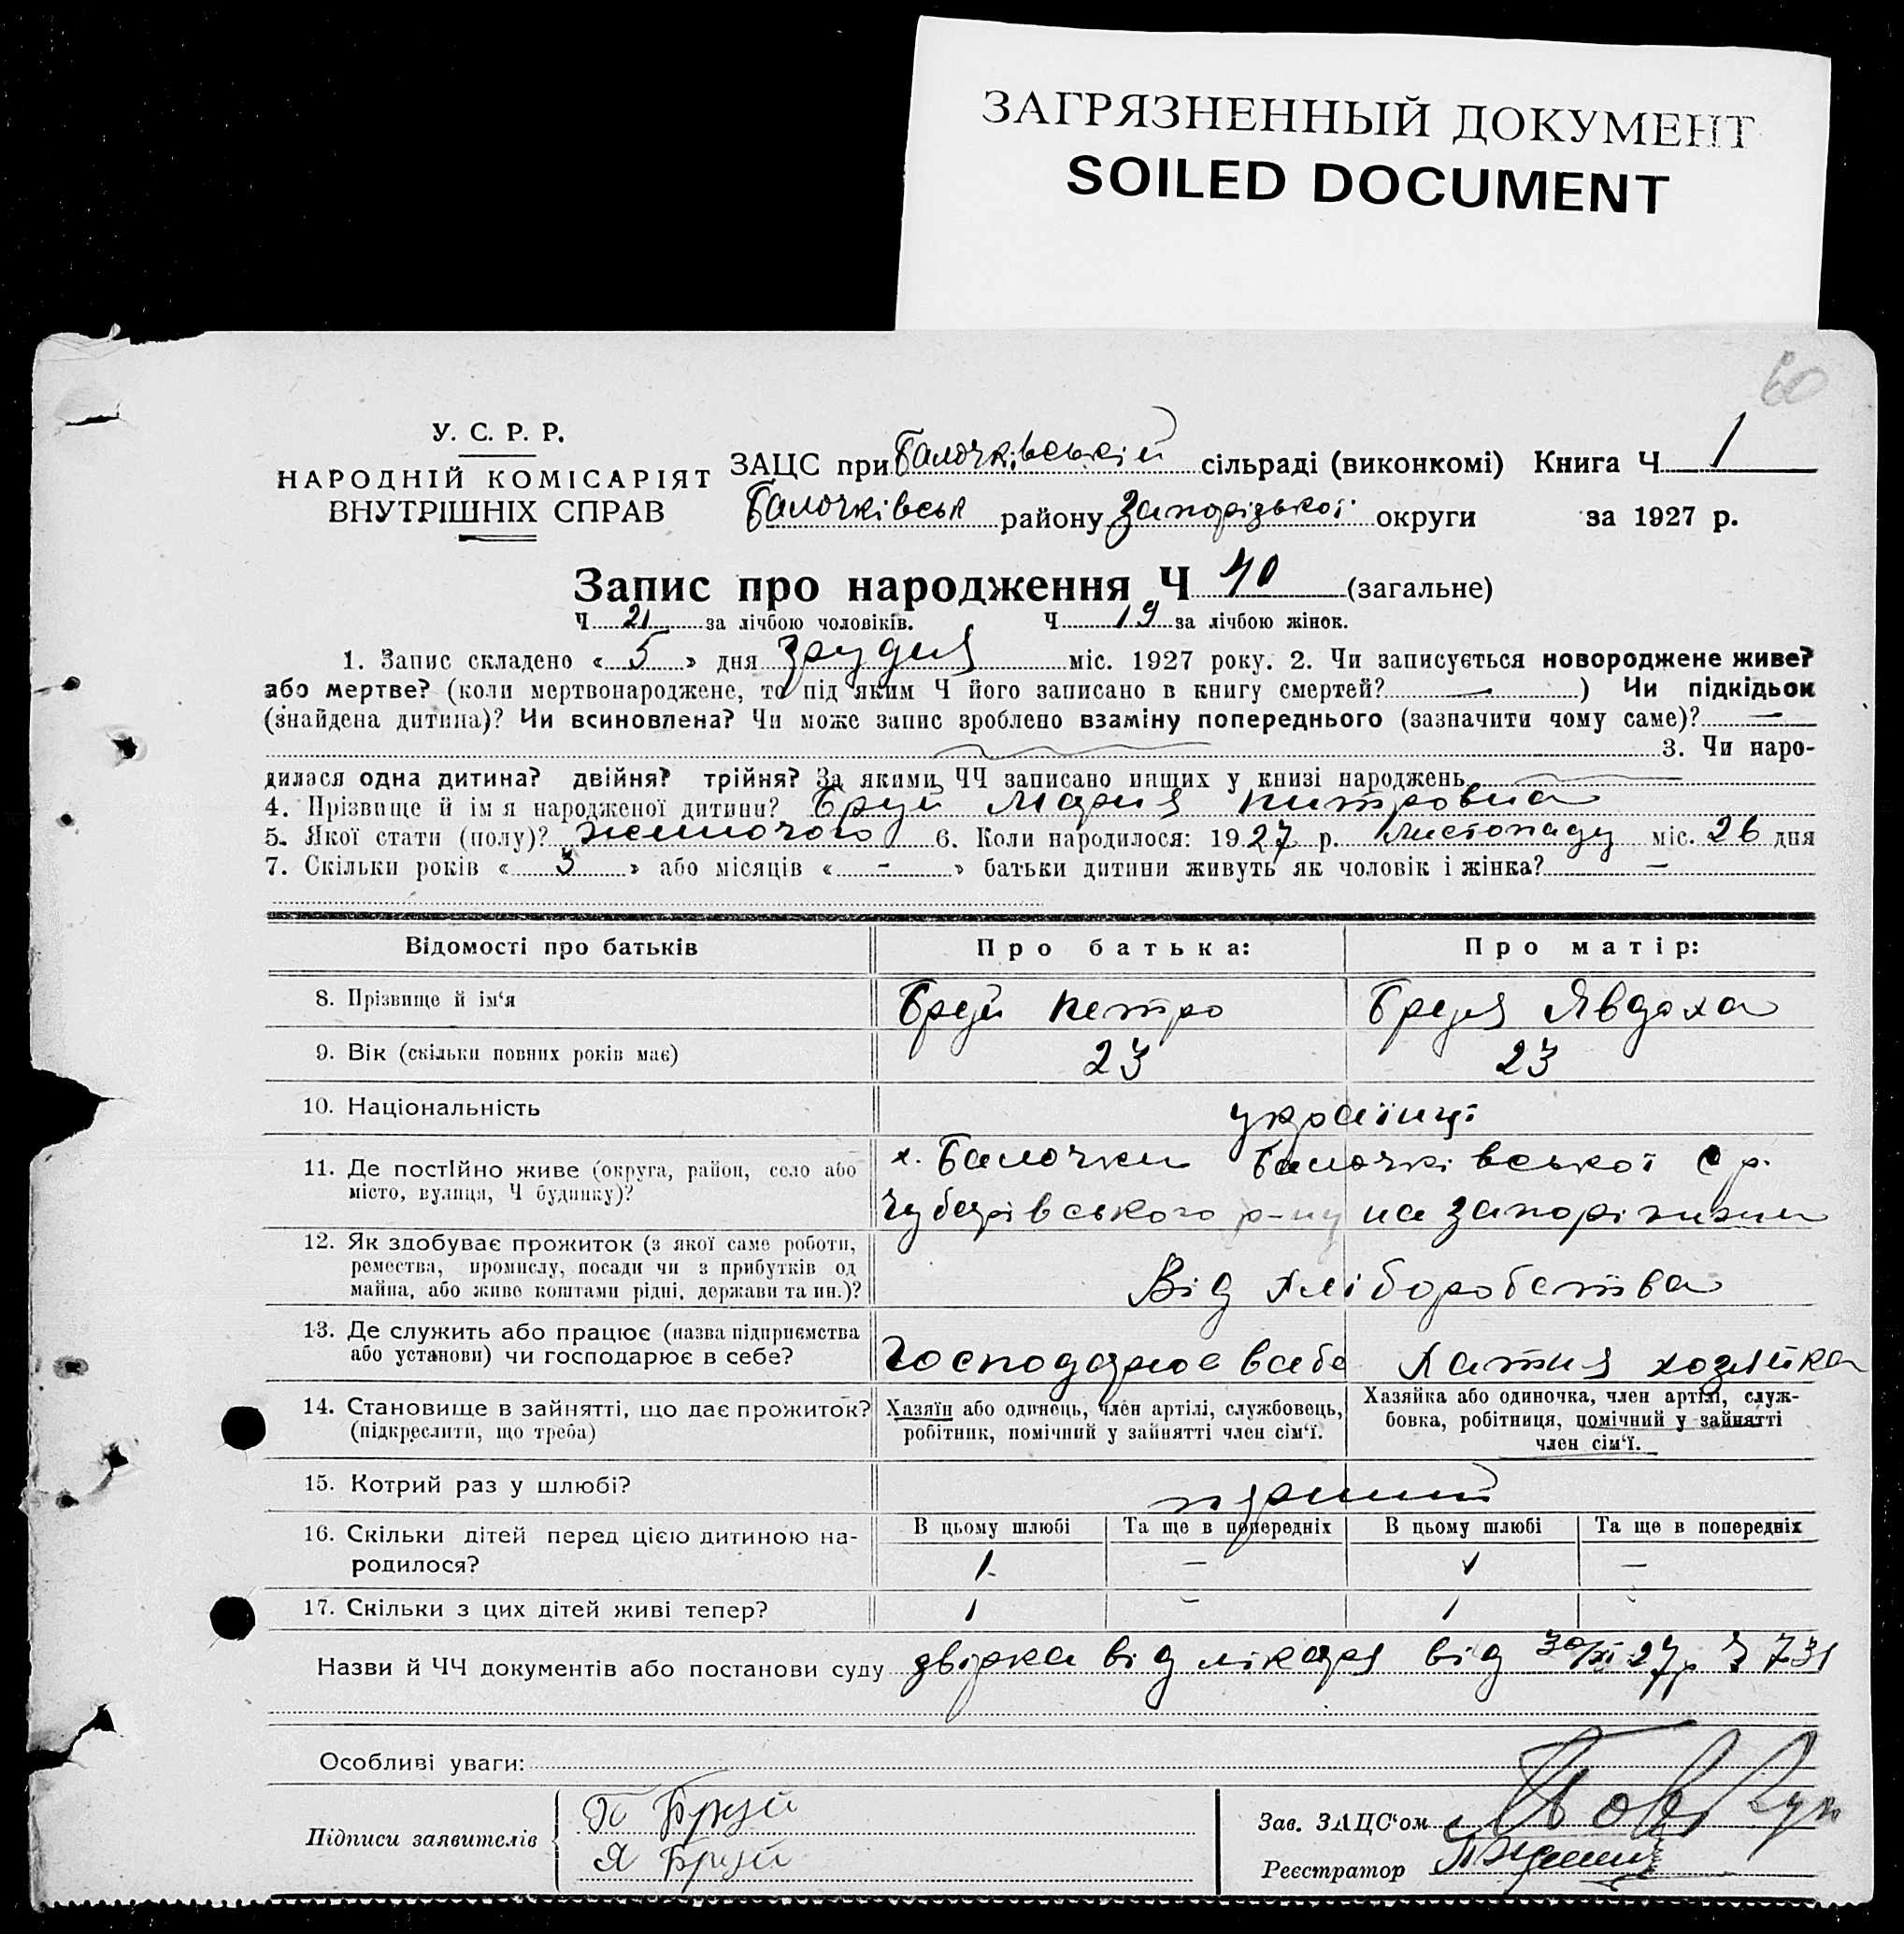 ЗАГРЯЗНЕННЫЙ ДОКУМЕНТ
SOILED DOCUMENT
60
У. С. Р. Р.
НАРОДНІЙ КОМІСАРІЯТ
ВНУТРІШНІХ СПРАВ
ЗАЦС при Балочківській сільраді (виконкомі) Книга Ч 1
Балочківськ району Запорізької округи за 1927 р.
Запис про народження Ч 40 (загальне)
Ч 21 за лічбою чоловіків. Ч 19 за лічбою жінок.
1. Запис складено « 5 » дня грудня міс. 1927 року. 2. Чи записується новороджене живе?
або мертве? (коли мертвонароджене, то під яким Ч його записано в книгу смертей? — ) Чи підкідьок
(знайдена дитина)? Чи всиновлена? Чи може запис зроблено взаміну попереднього (зазначити чому саме)? —
3. Чи наро-
дилася одна дитина? двійня? трійня? За якими ЧЧ записано инших у книзі народжень
4. Прізвище й ім я народженої дитини? Бруй Мария Питровна
5. Якої стати (полу)? жиночого 6. Коли народилося: 1927 р. Листопаду міс. 26 дня
7. Скільки років « 3 » або місяців « - » батьки дитини живуть як чоловік і жінка? —
Відомості про батьків
Про батька:
Про матір:
8. Прізвище й ім‘я
Бруй Петро
Бруя Явдоха
9. Вік (скільки повних років має)
23
23
10. Національність
українці
11. Де постійно живе (округа, район, село або
місто, вулиця, Ч будинку)?
х. Балочки Балочківської с р.
Чубарівського р-ну на Запоріжжи
12. Як здобуває прожиток (з якої саме роботи,
ремества, промислу, посади чи з прибутків од
майна, або живе коштами рідні, держави та ин.)?
Від хліборобства
13. Де служить або працює (назва підприємства
або установи) чи господарює в себе?
Господарює всебе
Хатня хозяйка
14. Становище в зайнятті, що дає прожиток?
(підкреслити, що треба)
Хазяїн або одинець, член артілі, службовець,
робітник, помічний у зайнятті член сім‘ї.
Хазяйка або одиночка, член артілі, служ-
бовка, робітниця, помічний у зайнятті
член сім‘ї.
15. Котрий раз у шлюбі?
перший
16. Скільки дітей перед цією дитиною на-
родилося?
В цьому шлюбі
Та ще в попередніх
В цьому шлюбі
Та ще в попередніх
1
—
1
—
17. Скільки з цих дітей живі тепер?
1
-
1
-
Назви й ЧЧ документів або постанови суду звірка від лікаря від 30/XI 27р Ч 731
Особливі уваги:
Підписи заявителів
П Бруй
Я Бруй
Зав. ЗАЦС‘ом
Реєстратор